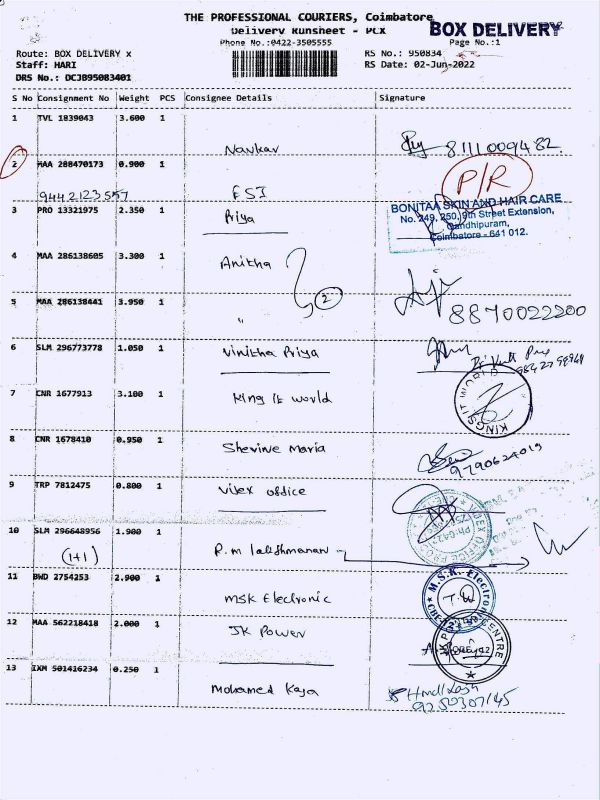 THE PROFESSIONAL COURIERS, Coimbatore
Delivery Runsheet - PCX
BOX DELIVERY
Phone No.:0422-3505555
Page No.:1
Route: BOX DELIVERY x
RS No.: 950834
Staff: HARI
RS Date: 02-Jun-2022
DRS No.: DCJB95083401
S No Consignment No Weight PCS Consignee Details Signature
1 TVL 1839043 3.600 1
Navkar 8111009482
2 MAA 288470173 0.900 1
P/R
9442123557 ESI
BONITAA SKIN AND HAIR CARE
3 PRO 13321975 2.350 1 Priya
No. 249, 250, 9th Street Extension,
Gandhipuram,
Coimbatore - 641 012.
4 MAA 286138605 3.300 1 Anitha
2
5 MAA 286138441 3.950 1 "
8870022200
6 SLM 296773778 1.050 1 Vinitha Priya
7 CNR 1677913 3.100 1 King it world
KINGS IT WORLD
8 CNR 1678410 0.950 1 Sherine Maria
9790624019
9 TRP 7812475 0.800 1 Vilex office
10 SLM 296648956 1.900 1
(1+1) R.m lakshmanan
11 BWD 2754253 2.900 1
MSK Electronic
M.S.K. Electronic
12 MAA 562218418 2.000 1
JK Power
13 IXM 501416234 0.250 1
Mohamed Kaja
9250307145